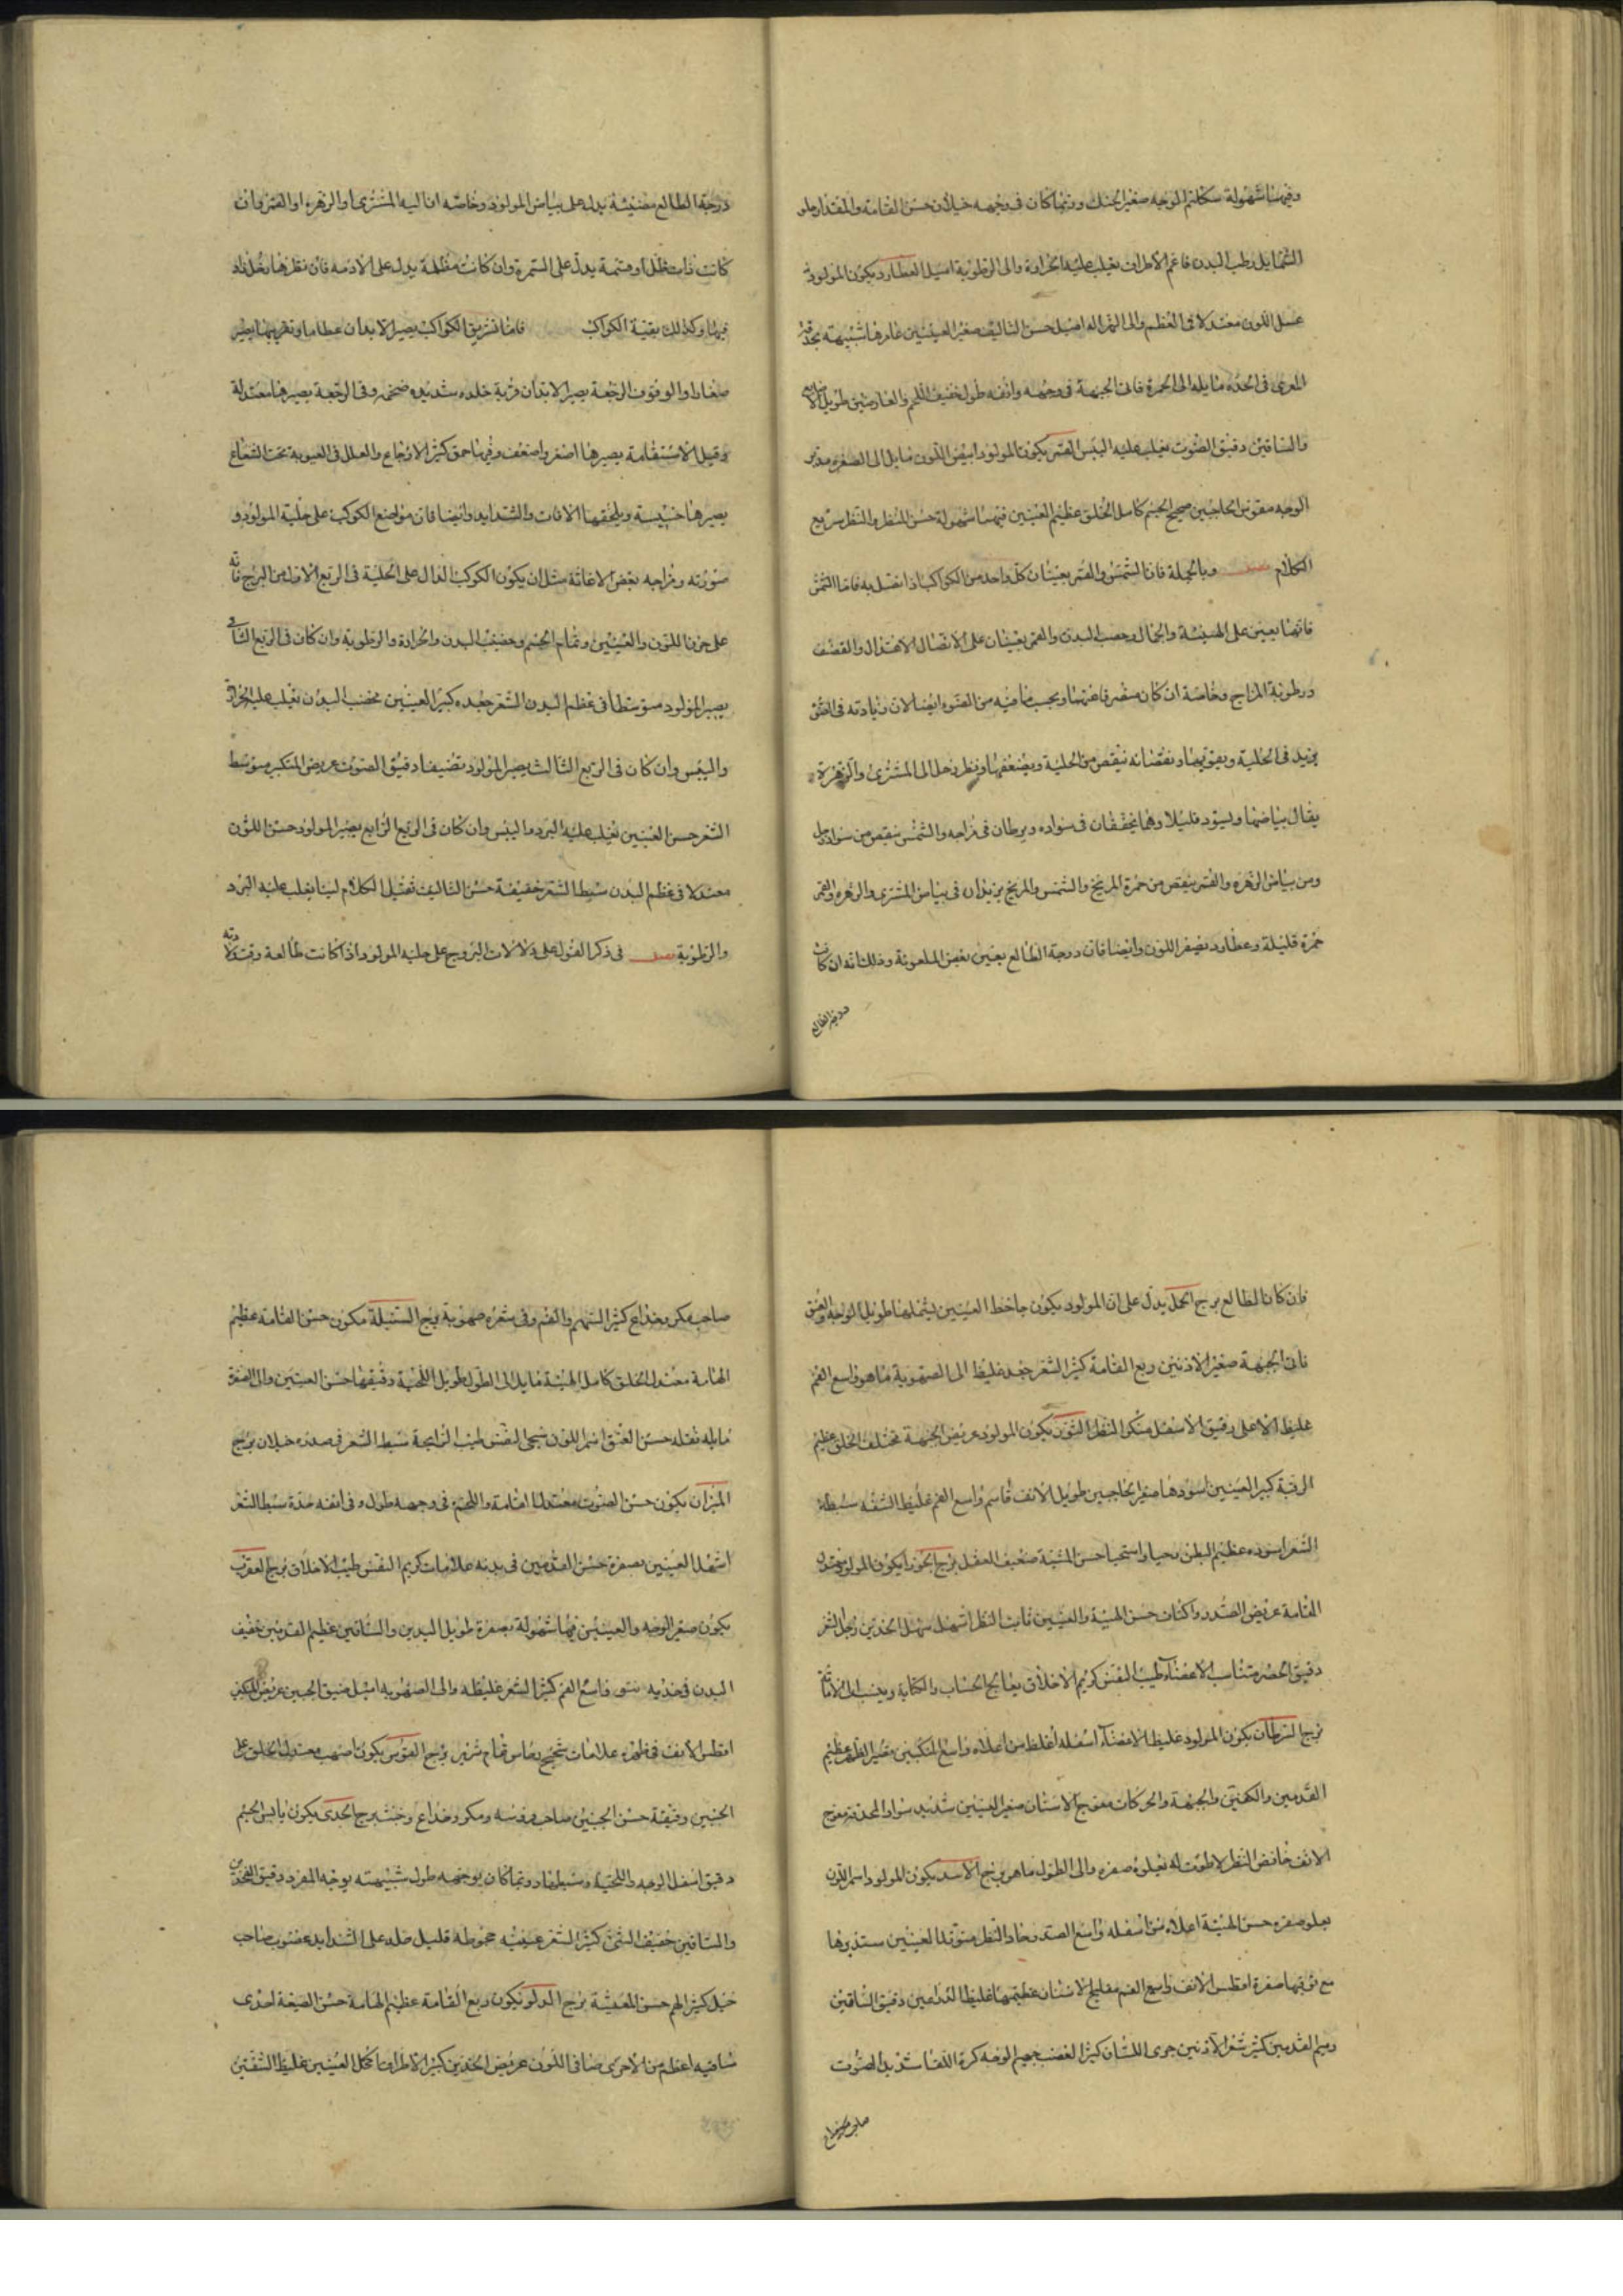 وفيهما شهولة سكلثم الوجه صغير الحنك وربما كان في وجهه خيلان حسن القامة والمقدار حلو
الشمايل رطب البدن فاعم الاطراف يغلب عليه الحرارة والى الرطوبة اميل العطارد يكون المولود
عسل اللون معتدلا في العظم والى الهزاله اميل حسن التاليف صغير العينين غامرها شبيهة بحدقة
المعرى في الحده مايله الى الحمرة فاتى الجبهة في وجهه وانفه طول خفيف اللحم والعارضين طويل الاصابع
والساقين دقيق الصوت يغلب عليه اليبس القمر يكون المولود ابيض اللون مايل الى الصفره مدور
الوجه مقوس الحاجبين صحيح الجسم كامل الخلق عظيم العينين فيهما شهولة حسن المنظر والنظر سريع
الكلام وبالجملة فان الشمس والقمر يعينان كل واحد من الكواكب اذا اتصل به فاما الشمس
فانها يعين على الهيئة والجمال وخصب البدن والقمر يعينان على الاتصال الاعتدال والقضف
ورطوبة المزاج وخاصة ان كان وبحسب ما فيه من الضوء ايضا لان زيادته في الضوء
يزيد في الحلية ويقويها ونقصانه ينقص من الحلية ويضعفها ونظر زحل الى المشترى والزهرة
يقال بياضهما ويسود قليلا وهما يخففان في سواده ويرطبان في مزاجه والشمس ينقص من سواد زحل
ومن بياض الزهره والقمر ينقص من حمرة المريخ والشمس والمريخ يزيدان في بياض المشترى والزهره والقمر
حمرة قليلة وعطارد يصفر اللون وايضا فان درجة الطالع يعين بعض المعونة وذلك انه ان كانت
درجة الطالع
درجة الطالع مضيئة يدل على بياض المولود وخاصه ان اليه المشترى او الزهره او القمر وان
كانت ذات ظل او قتمة يدل على السمرة وان كانت مظلمة يدل على الادمه فان نظرها زحل زاد
فيها وكذلك بقية الكواكب فاما تشريق الكواكب يصير الابدان عظاما وتغريبها يصير
صغارا والوقوف الرجعة يصير الابدان قوية جلده شديده ضخمه وفي الرجعة يصيرها معتدلة
وقبل الاستقامة يصيرها اصغر واضعف وفيها حمق كثير الاوجاع والعلل في الغيبوبة تحت الشعاع
يصيرها خسيسة ويلحقها الافات والشدايد وايضا فان مواضع الكوكب على حلية المولود و
صورته ومزاجه بعض الاعانة مثل ان يكون الكوكب الدال على الحلية في الربع الاول من البرج فانه
على حزن اللون والعينين وتمام الجسم وخصب البدن والحرارة والرطوبة وان كان في الربع الثانى
يصير المولود متوسطا في عظم البدن الشعر جعده كبير العينين مخصب البدن يغلب عليه الحرارة
واليبس وان كان في الربع الثالث يصير المولود نضيفا دقيق الصوت عريض المنكبين متوسط
الشعر حسن العينين يغلب عليه البرد ما اليبس وان كان في الربع الرابع يصير المولود حسن اللون
معتدلا في عظم البدن سبط الشعر خفيفة حسن التاليف ثقيل الكلام لينا يغلب عليه البرد
والرطوبة في ذكر القول على دلالات البروج على حلية المولود واذا كانت طالعة وقت ولادته
فان كان الطالع برج الحمل يدل على ان المولود يكون جاحظ العينين يشملهما طويل الوجه والعنق
ناتى الجبهة صغير الاذنين ربع القامة كثير الشعر جعد غليظ الى الصهوبة ما هو واسع الفم
غليظ الاعلى رقيق الاسفل منكر النظر الثور يكون المولود عريض الجبهة مختلف الخلق عظيم
الرقبة كبير العينين اسودها صغير الحاجبين طويل الانف قاسم واسع الفم غليظ الشفه سبطة
الشعر اسوده عظيم البطن وحيا واستحيا حسن المشية ضعيف العقل برج الجوزا يكون المولود معتدل
القامة عريض الصدر واكتاف حسن الهيئة والعينين ثابت النظر اشهل سهل الخدين رجل الشعر
دقيق الخصر متناسب الاعضاء طيب النفس كريم الاخلاق يعالج الحساب والكتابة وينسب الى الامانة
برج السرطان يكون المولود غليظ الاعضاء اسفله اغلظ من اعلاه واسع المنكبين قصير الظهر عظيم
القدمين والكفين والجبهة والحركات معوج الاسنان صغير العينين شديد سواد الحدقة معوج
الانف خافض النظر لا ظوت له يعلوه صفره والى الطول ما هو برج الاسد يكون المولود اسمر اللون
يعلو صفره حسن الهيئة اعلاه من اسفله واسع الصدر حاد النظر متوقد العينين مستديرها
مع شوبها صفرة افطس الانف واسع الفم مفلج الاسنان عظيمها غليظ الذراعين دقيق الساقين
وميم القدمين كثير شعر الاذنين جرى اللسان كثير الغضب جهيم الوجه كره اللقا شديد الصوت
صاحب مكر وخداع
صاحب مكر وخداع كثير الشهم والغم وفي شعره صهوبة برج السنبلة مكون حسن القامة عظيم
الهامة معتدل الخلق كامل الهيئة مايل الى الطول طويل اللحية دقيقها حسن العينين والى الصفرة
مايله ثقله حسن العنق اسمر اللون سخى النفس طيب الرايحة سبط الشعر في صدره خيلان برج
الميزان يكون حسن الصوت معتدل القامة واللحية في وجهه طول وفي انفه حدة سبط الشعر
اشهل العينين بصفرة حسن القدمين في بدنه علامات كريم النفس طيب الاخلاق برج العقرب
يكون صغير الوجه والعينين فيها شهولة بصفرة طويل اليدين والساقين عظيم القدمين خفيف
البدن فخذيه واسع الفم كثير الشعر غليظه والى الصهوبه اميل ضيق الجبين عريض المنكبين
افطس الانف في ظهره علامات شحيح نمام شرير برج القوس يكون اصهب معتدل الخلق على
الجنبين وقيقة حسن الجبين صاحب فروسه ومكر وخداع وخنث برج الجدى يكون يابس الجسم
دقيق اسفل الوجه واللحية وسبطها وربما كان بوجهه طول شبيهته بوجه المعز دقيق الفخذين
والساقين خفيف المشى كثير الشعر مخوطه قليل صلد على الشدايد غضوب صاحب
حيل كثير الهم حسن المعيشة برج الدلو يكون ربع القامة عظيم الهامة حسن الصيغة احدى
ساقيه اعظم من الاخرى صافى اللون عريض الخدين كبير الاطراف اكحل العينين غليظ الشفتين